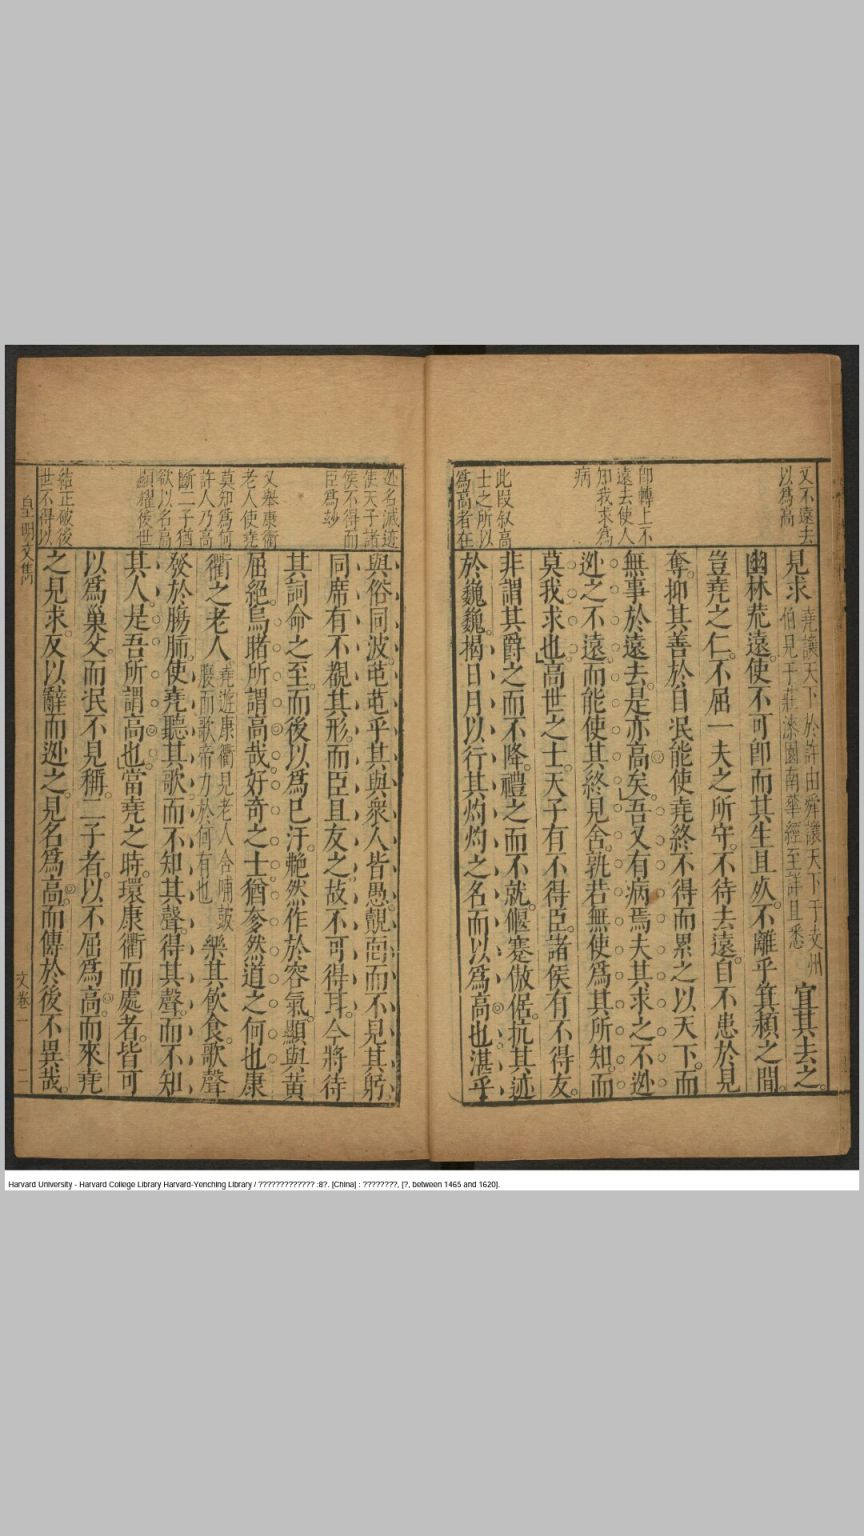 又不遠去
以為高
卽轉上不
遠去使人
知我求為
病
此叚叙高
士之所以
為高者在
見求堯讓天下於許由舜讓天下于支州伯見于莊漆園南華經至詳且悉宜其去之
幽林荒遠。使不可卽而其生且灰。不離乎箕潁之間。
豈堯之仁。不屈一夫之所守。不待去遠。自不患於見
奪。抑其善於自泯能使堯終不得而累之以天下。而
無事於遠去。是亦高矣。吾又有病焉夫其求之不
逊之不遠。而能使其終見舍。孰若無使為其所知。而
莫我求也。高世之士。天子有不得臣。諸侯有不得友。
非謂其爵之而不降。禮之而不就。偃蹇傲倨。抗其迹
於巍巍。揭日月以行其灼灼之名而以為高也湛乎
迹名滅迹
使天子諸
侯不得而
臣為玅
又舉康衢
老人使堯
莫知為何
許人乃高
斷二子猶
欲以名高
顯耀後世
結正破後
世不得以
與俗同波。芚芚乎其與衆人皆愚。覿面而不見其躬
同席有不觀其形。而臣且友之。故不可得耳。今將待
其詞命之至而後以為已汙。艴然作於容氣。顯與黃
屈絕。烏睹所謂高哉。好奇之士猶奓然道之何也康
衢之老人。堯遊康衢見老人含哺鼓腹而歌帝力於何有也樂其飲食。歌聲
發於腸胏。使堯聽其歌而不知其聲。得其聲。而不知
其人。是吾所謂高也。當堯之時。環康衢而處者。皆可
以為巢父。而泯不見稱。二子者。以不屈為高。而來堯
之見求。反以辭而逊之。見名為高。而傳於後不異哉。
皇明文雋
文卷一
二
Harvard University - Harvard College Library Harvard-Yenching Library / ????????????? :8?. [China] : ????????, [?, between 1465 and 1620].